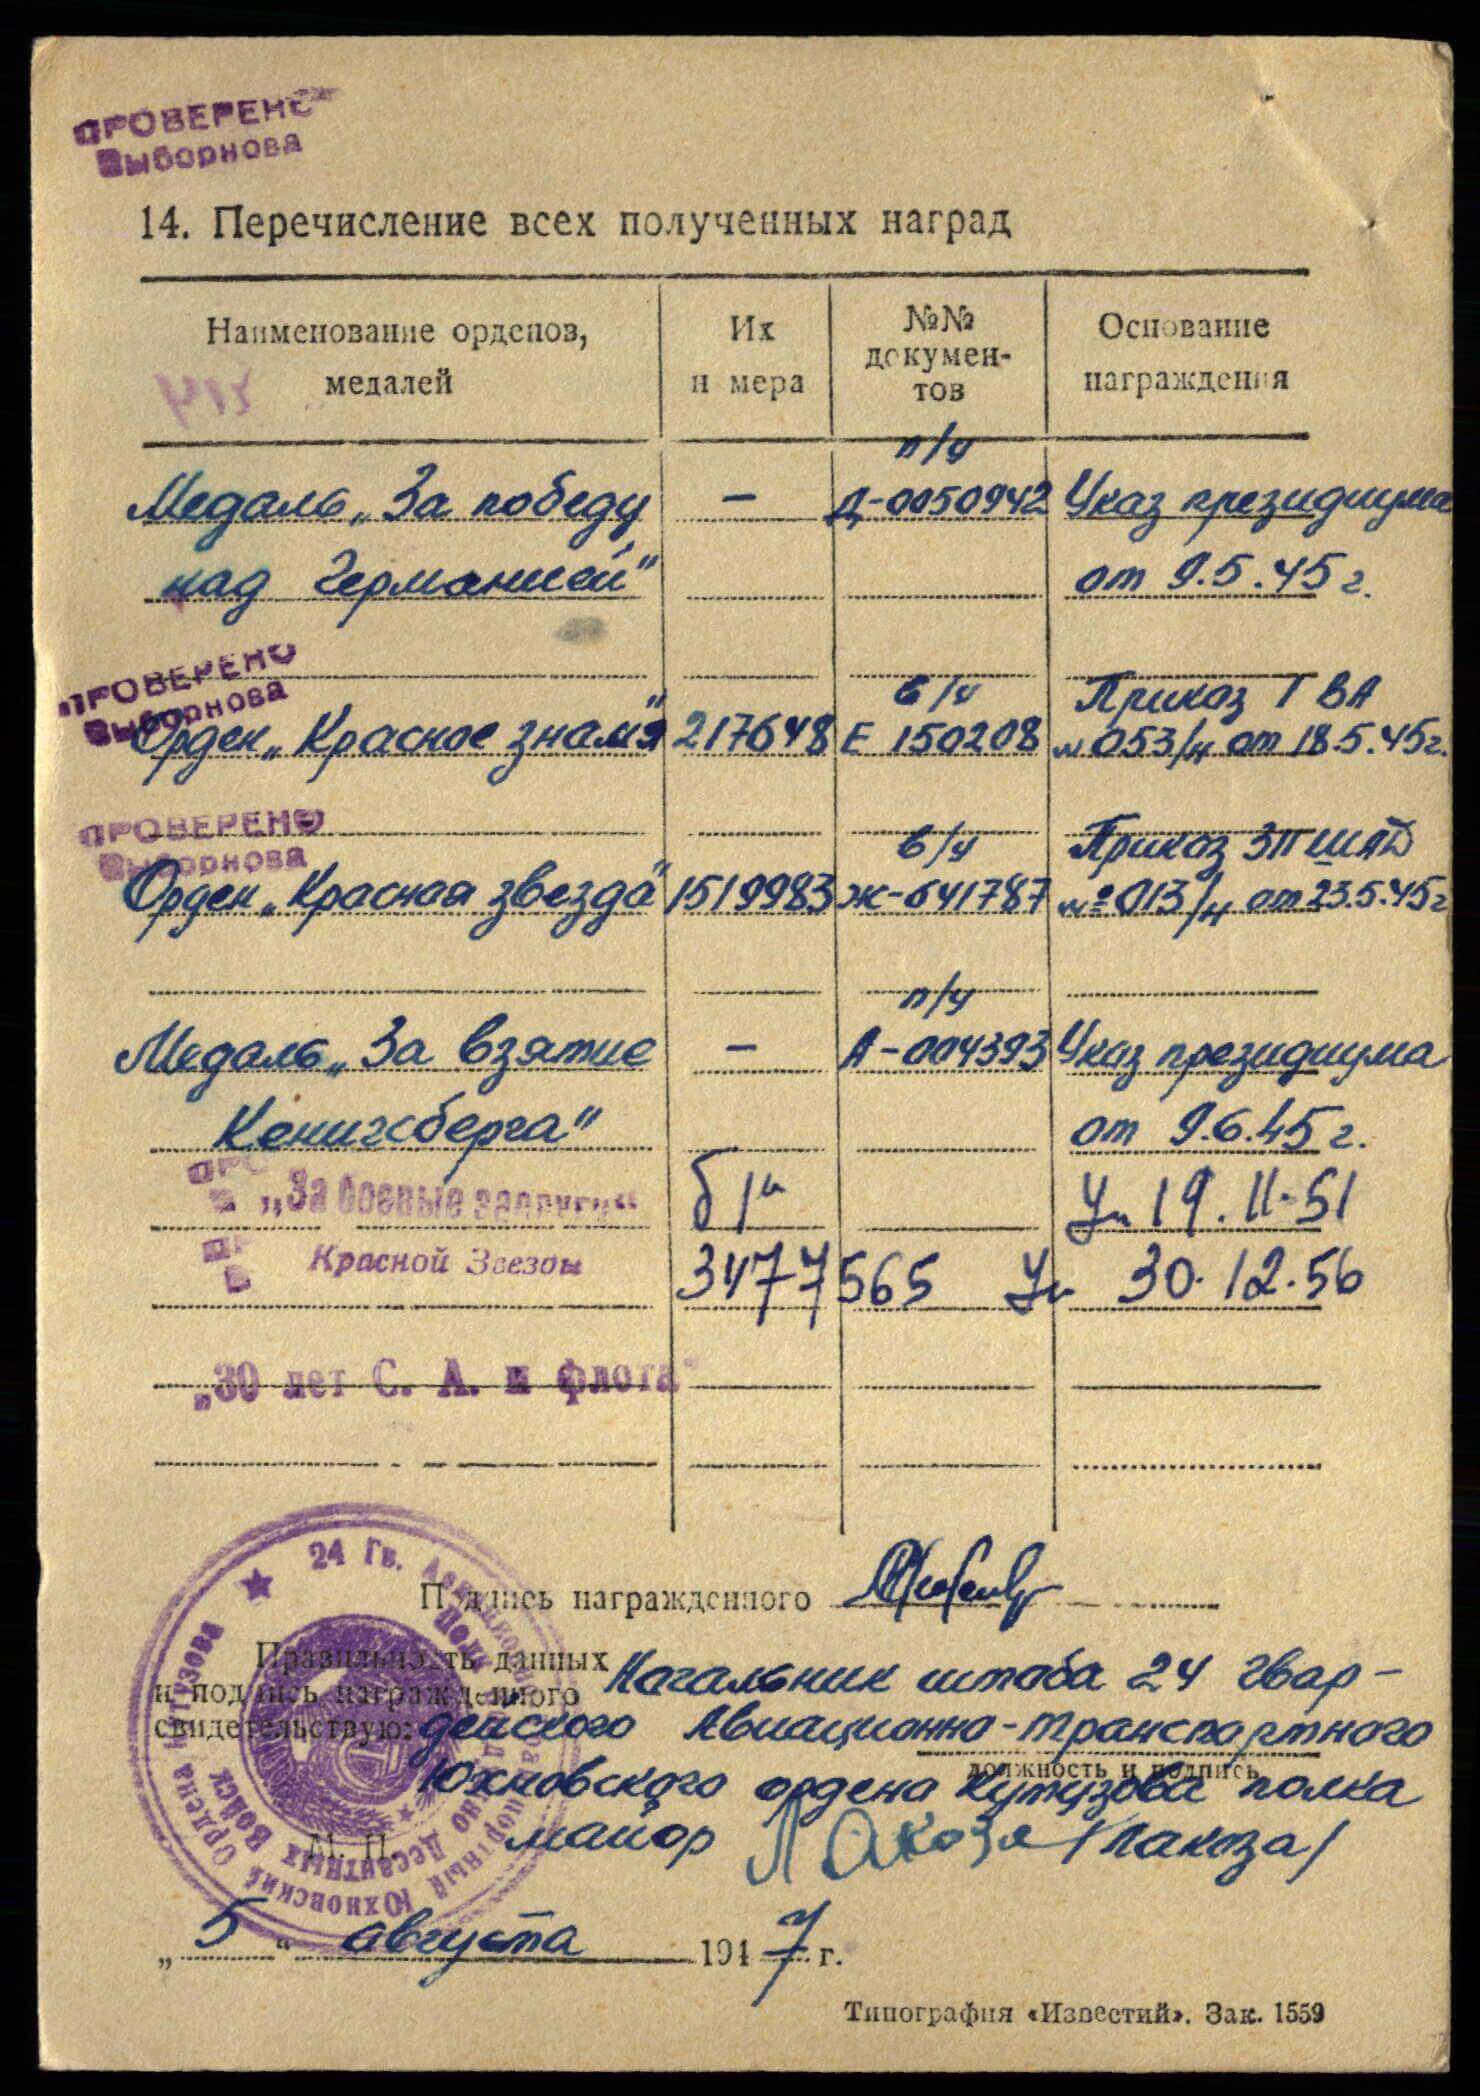 ПРОВЕРЕНО
Выборнова
14. Перечисление всех полученных наград
Наименование орденов, медалей
Их н мера
№№ документов
Основание награждения
п/у
Медаль „За победу — Д-0050942 Указ президиума
над Германией" от 9.5.45 г.
ПРОВЕРЕНО
Выборнова
в/ч Приказ 1 ВА
Орден „Красное знамя" 217648 Е 150208 № 053/н от 18.5.45г.
ПРОВЕРЕНО
Выборнова
в/ч Приказ 311 ШАД
Орден „Красная звезда" 1519983 Ж-641787 №013/н от 23.5.45г
п/у
Медаль „За взятие — А-004393 Указ президиума
Кенигсберга" от 9.6.45 г.
„За боевые заслуги" б/н Ук 19.11.51
Красной Звезды 3477565 Ук 30.12.56
„30 лет С. А. и флота"
Подпись награжденного
Правильность данных
и подпись награжденного
свидетельствую:
Начальник штаба 24 гвар-
дейского Авиационно-транспортного
должность и подпись
Юхновского ордена Кутузова полка
М. П.
майор Лакоза /Лакоза/
„5" августа 1947 г.
24 Гв. Авиационно Транспортный Юхновский Ордена Кутузова
Полк Воздушно Десантных Войск
Типография «Известий». Зак. 1559